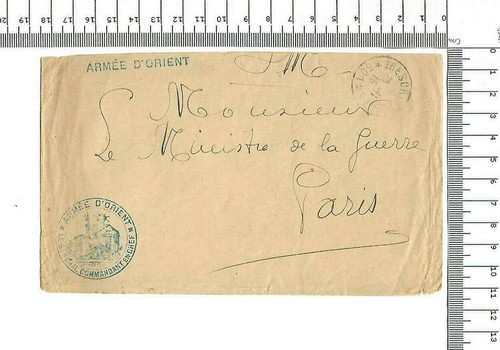 ARMÉE D'ORIENT
S.M.
TRESOR
Monsieur
Le Ministre de la Guerre
Paris
ARMÉE D'ORIENT
LE GÉNÉRAL COMMANDANT EN CHEF
20 19 18 17 16 15 14 13 12 11 10 9 8 7 6 5 4 3 2 1 0
0 1 2 3 4 5 6 7 8 9 10 11 12 13